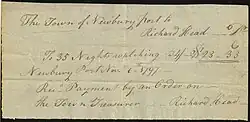 The Town of Newbury port to
Richard Head
To 35 Nights watching 4/ $ 23 - 33
Newbury Port Nov 6th 1797
Rec'd Payment by an Order on
the Town Treasurer
Richard Head